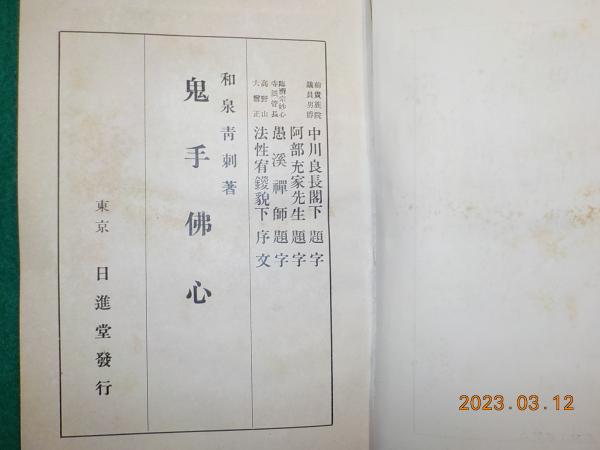 前貴族院
議員男爵
中川良長閣下 題字
阿部充家先生 題字
臨濟宗妙心
寺派管長
愚溪禪師 題字
高野山
大僧正
法性宥鑁貌下 序文
和泉青刺著
鬼手佛心
東京 日進堂發行
2023.03.12